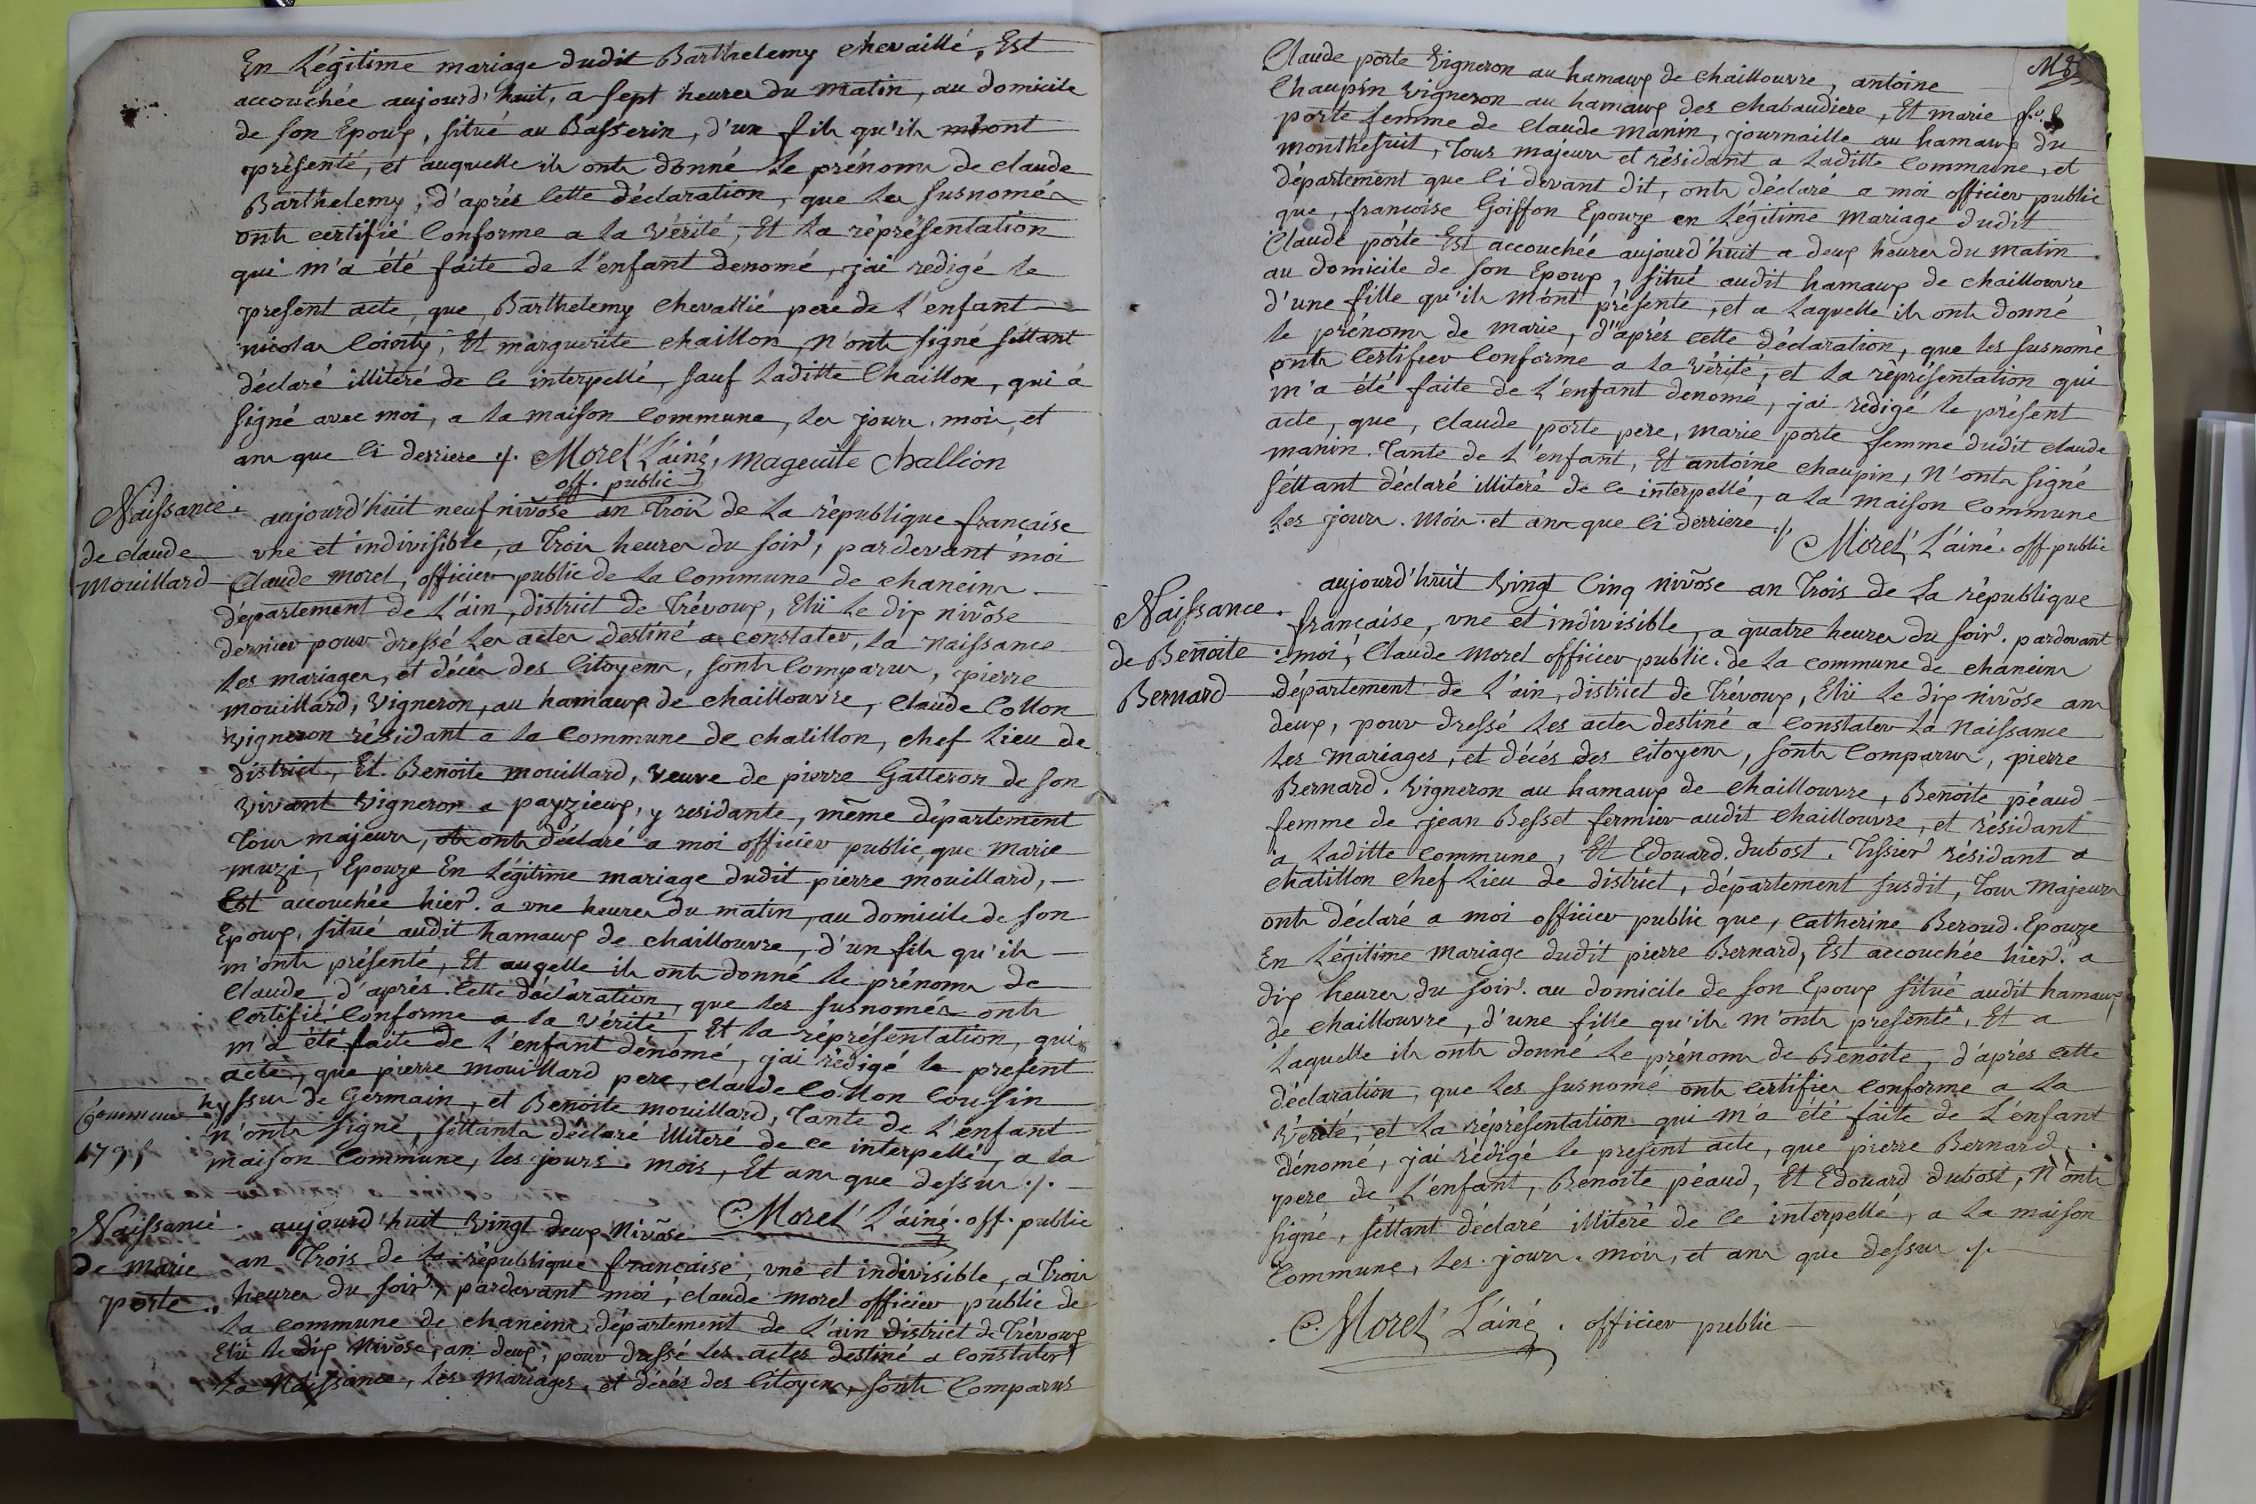 En Légitime mariage dudit Barthelemy chevaillé, Est
accouchée aujourd'huit, a sept heures du matin, au domicile
de son Epoux, situé au Basserin, d'un fils qu'ils m'ont
présenté, et auquelle ils onts donné le prénoms de claude
Barthelemy, d'après cette déclaration, que les susnomés
onts certifié conforme a la vérité, Et la réprésentation
qui m'a été faite de l'enfant denomé, j'ai redigé le
present acte, que Barthelemy chevallié pere de l'enfant
nicolas Cointy, Et marguerite chaillon, n'onts signé séttant
déclaré illiteré de ce interpellé, sauf laditte Chaillon, qui à
signé avec moi, a la maison commune, les jours, mois, et
ans que ci derriere ./. Morel L'ainé, mageuite challion
off. public
Naissance
de claude
Mouillard
aujourd'huit neuf nivôse an Trois de la république française
une et indivisible, a Trois heures du soir, pardevant moi
Claude morel, officier public de la commune de chaneins
département de L'ain, district de Trévoux, Elü le dix nivôse
dernier pour dressé les actes destiné a constater, la naissance
les mariages, et décés des citoyens, sonts comparus, pierre
mouillard, vigneron, au hamaux de chaillouvre, claude Collon
vigneron résidant a la commune de chatillon, chef lieu de
district, Et Benoite mouillard, veuve de pierre Galleron de son
vivant vigneron a payzieux, y residante, même département
Tous majeurs, onts déclaré a moi officier public, que marie
muzi, Epouze En Légitime mariage dudit pierre mouillard,
Est accouchée hier a une heures du matin, au domicile de son
Epoux, situé audit hamaux de chaillouvre, d'un fils qu'ils
m'onts présenté, Et auqelle ils onts donné le prénoms de
Claude, d'après cette déclaration, que les susnomés onts
certifié conforme a la vérité, Et la réprésentation, qui
m'a été faite de l'enfant dénomé, j'ai rédigé le present
acte, que pierre mouillard pere, claude Collon Cousin
issus de Germain, et Benoite mouillard, Tante de l'enfant
n'onts signé, séttants déclaré illiteré de ce interpellé, a la
maison commune, les jours, mois, Et ans que dessus ./.
1795
Morel L'ainé. off. public
Naissance
de marie
porte
aujourd'huit vingt deux Nivôse
an Trois de la république française, une et indivisible, a Trois
heures du soir, pardevant moi, claude morel officier public de
la commune de chaneins, département de L'ain district de Trévoux
Elü le dix Nivôse, an deux, pour dressé les actes destiné a constater
la Naissance, les mariages, et décés des citoyens, sonts comparus
Claude porte vigneron au hamaux de chaillouvre, antoine
Chaupin vigneron au hamaux des chabaudiere, Et marie
porte femme de claude manin, journaille au hamaux du
monthefrit, Tous majeurs et résidant a laditte commune, et
département que ci devant dit, onts déclaré a moi officier public
que, francoise Goiffon Epouze en Légitime Mariage dudit
Claude porte Est accouchée aujourd'huit a deux heures du matin
au domicile de son Epoux, situé audit hamaux de chaillouvre
d'une fille qu'ils m'ont présenté, et a laquelle ils onts donné
le prénoms de marie, d'après cette déclaration, que les susnomé
onts certifier conforme a la vérité, et la réprésentation qui
m'a été faite de l'enfant denomé, j'ai rédigé le présent
acte, que, claude porte pere, marie porte femme dudit claude
manin Tante de l'enfant, Et antoine chaupin, n'onts signé
séttant déclaré illiteré de ce interpellé, a la maison commune
les jours. mois. et ans que ci derriere ./.
Morel L'ainé. off. public
Naissance
de Benoite
Bernard
aujourd'huit vingt cinq nivôse an Trois de la république
française, une et indivisible, a quatre heures du soir. pardevant
moi, Claude Morel officier public. de la commune de chaneins
département de L'ain, district de Trévoux, Elü le dix nivôse an
deux, pour dressé les actes destiné a constater la naissance
les mariages, et décés des citoyens, sonts comparus, pierre
Bernard. vigneron au hamaux de chaillouvre, Benoite péaud
femme de jean Besset fermier audit chaillouvre, et résidant
a laditte commune, Et Edouard. dubost. Tissier résidant a
chatillon chef lieu de district, département susdit, Tous majeurs
onts déclaré a moi officier public que, catherine Beroud Epouze
En Légitime Mariage dudit pierre Bernard, Est accouchée hier. a
dix heures du soir. au domicile de son Epoux situé audit hamaux
de chaillouvre, d'une fille qu'ils m'onts presenté, Et a
laquelle ils onts donné le prénoms de Benoite, d'après cette
déclaration, que les susnomé onts certifier conforme a la
vérité, et la réprésentation qui m'a été faite de l'enfant
dénomé, j'ai rédigé le present acte, que pierre Bernard
pere de l'enfant, Benoite péaud, Et Edouard dubost, n'onts
signé, séttant déclaré illiteré de ce interpellé, a la maison
commune, les jours. mois, et ans que dessus ./.
Morel L'ainé. officier public